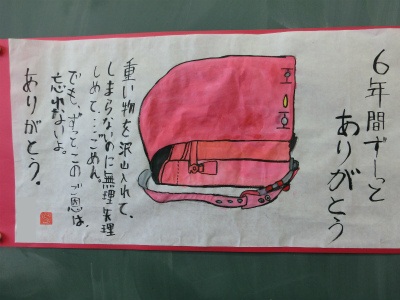 6年間ずーっと
ありがとう
重い物を沢山入れて、
しまらないのに無理矢理
しめて…ごめん。
でも、ずっとこのご恩は、
忘れないよ。
ありがとう。